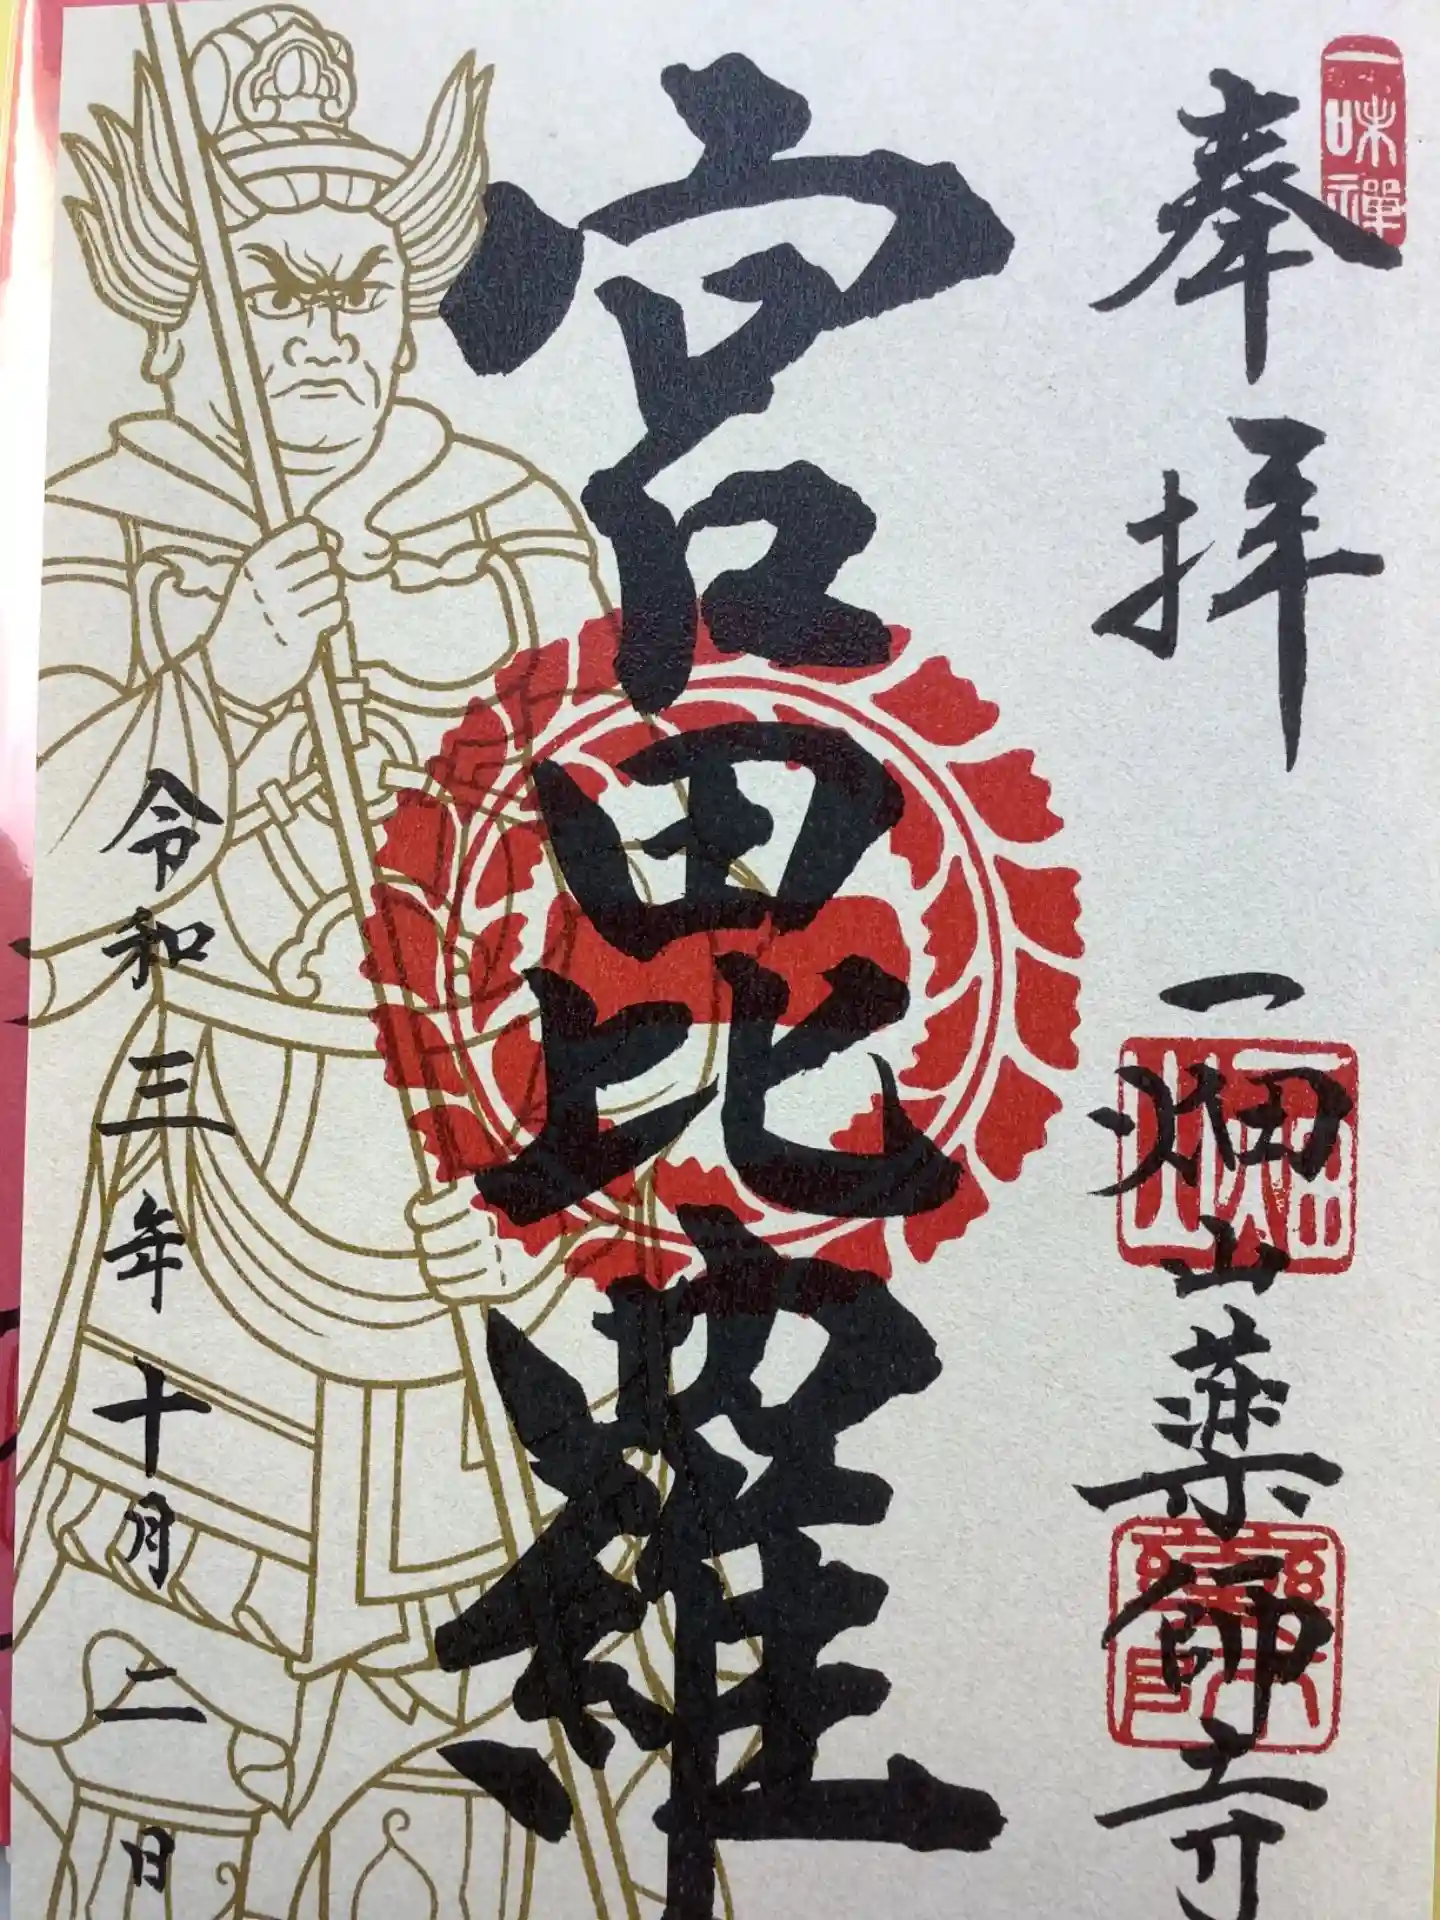 一味禅
奉拝
一畑山薬師寺
宮毘羅
令和三年十月二日